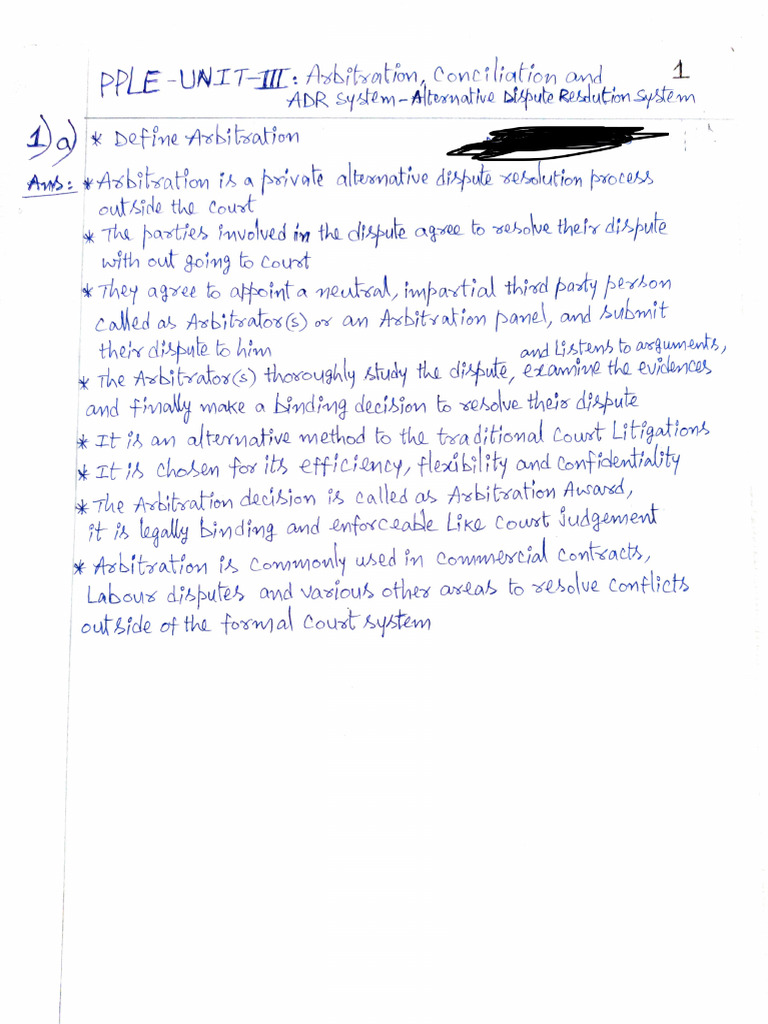 PPLE-UNIT-III: Arbitration, Conciliation and 1
ADR System-Alternative Dispute Resolution System
1)a) * Define Arbitration
Ans: * Arbitration is a private alternative dispute resolution process
outside the court
* The parties involved in the dispute agree to resolve their dispute
with out going to court
* They agree to appoint a neutral, impartial third party person
called as Arbitrator(s) or an Arbitration panel, and submit
their dispute to him
and Listens to arguments,
* The Arbitrator(s) thoroughly study the dispute, examine the evidences
and finally make a binding decision to resolve their dispute
* It is an alternative method to the traditional Court Litigations
* It is chosen for its efficiency, flexibility and confidentiality
* The Arbitration decision is called as Arbitration Award,
it is legally binding and enforceable Like court judgement
* Arbitration is commonly used in commercial contracts,
Labour disputes and various other areas to resolve conflicts
outside of the formal court system